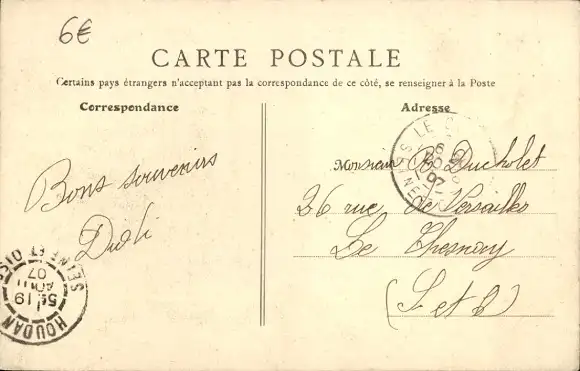 6€
CARTE POSTALE
Certains pays étrangers n'acceptant pas la correspondance de ce côté, se renseigner à la Poste
Correspondance
Adresse
Bons souvenirs
Monsieur Ducholet
26 rue de Versailles
Le Chesnay
(S et O)
HOUDAN
SEINE ET OISE
5E 19
AOUT
07
LE
07